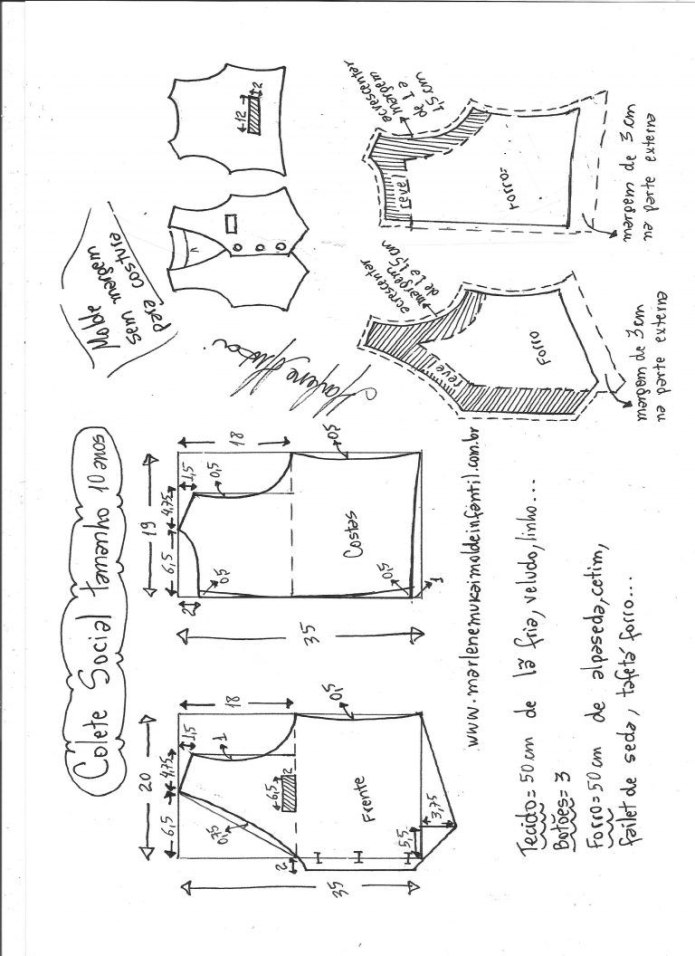 Colete Social tamanho 10 anos
Molde
sem margem
para costura
20
6,5
4,75
1,5
18
0,75
1
6,5
2
2
35
Frente
0,5
5,5
3,75
19
6,5
4,75
1,5
18
2
0,5
0,5
35
Costas
0,5
0,5
1
12
2
acrescentar
margem
de 1 a 1,5cm
revel
Forro
margem de 3cm
na parte externa
acrescentar
margem
de 1 a
1,5cm
revel
Forro=
margem de 3cm
na parte externa
www.marlenemukaimoldeinfantil.com.br
Tecido=50cm de lã fria, veludo, linho...
Botões=3
Forro=50cm de alpaseda, cetim,
failet de seda, tafetá forro...